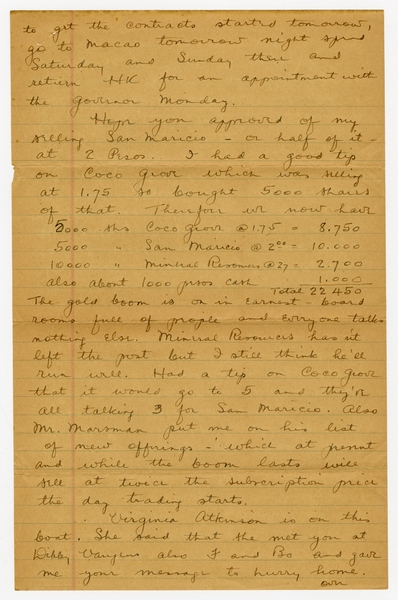 to get the contracts started tomorrow,
go to Macao tomorrow night spend
Saturday and Sunday there and
return HK for an appointment with
the Governor Monday.
Hope you approved of my
selling San Maricio - or half of it -
at 2 Pesos. I had a good tip
on Coco Grove which was selling
at 1.75 so bought 5000 shares
of that. Therefore we now have
5000 shs Coco Grove @ 1.75 = 8.750
5000 " San Maricio @ 2.00 = 10.000
10000 " Mineral Resources @ 27 = 2.700
also about 1000 pesos cash 1.000
Total 22 450
The gold boom is on in earnest - board
rooms full of people and everyone talks
nothing else. Mineral Resources hasn't
left the post but I still think he'll
run well. Had a tip on Coco Grove
that it would go to 5 and they're
all talking 3 for San Maricio. Also
Mr. Marsman put me on his list
of new offerings - which at present
and while the boom lasts will
sell at twice the subscription price
the day trading starts.
Virginia Atkinson is on this
boat. She said that she met you at
Debby also F and Bo and gave
me your message to hurry home.